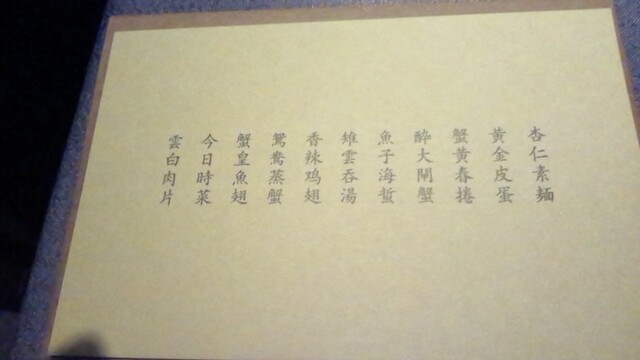 杏仁素麵
黃金皮蛋
蟹黃春捲
醉大閘蟹
魚子海蜇
雉雲吞湯
香辣鸡翅
鴛鴦蒸蟹
蟹皇魚翅
今日時菜
雲白肉片